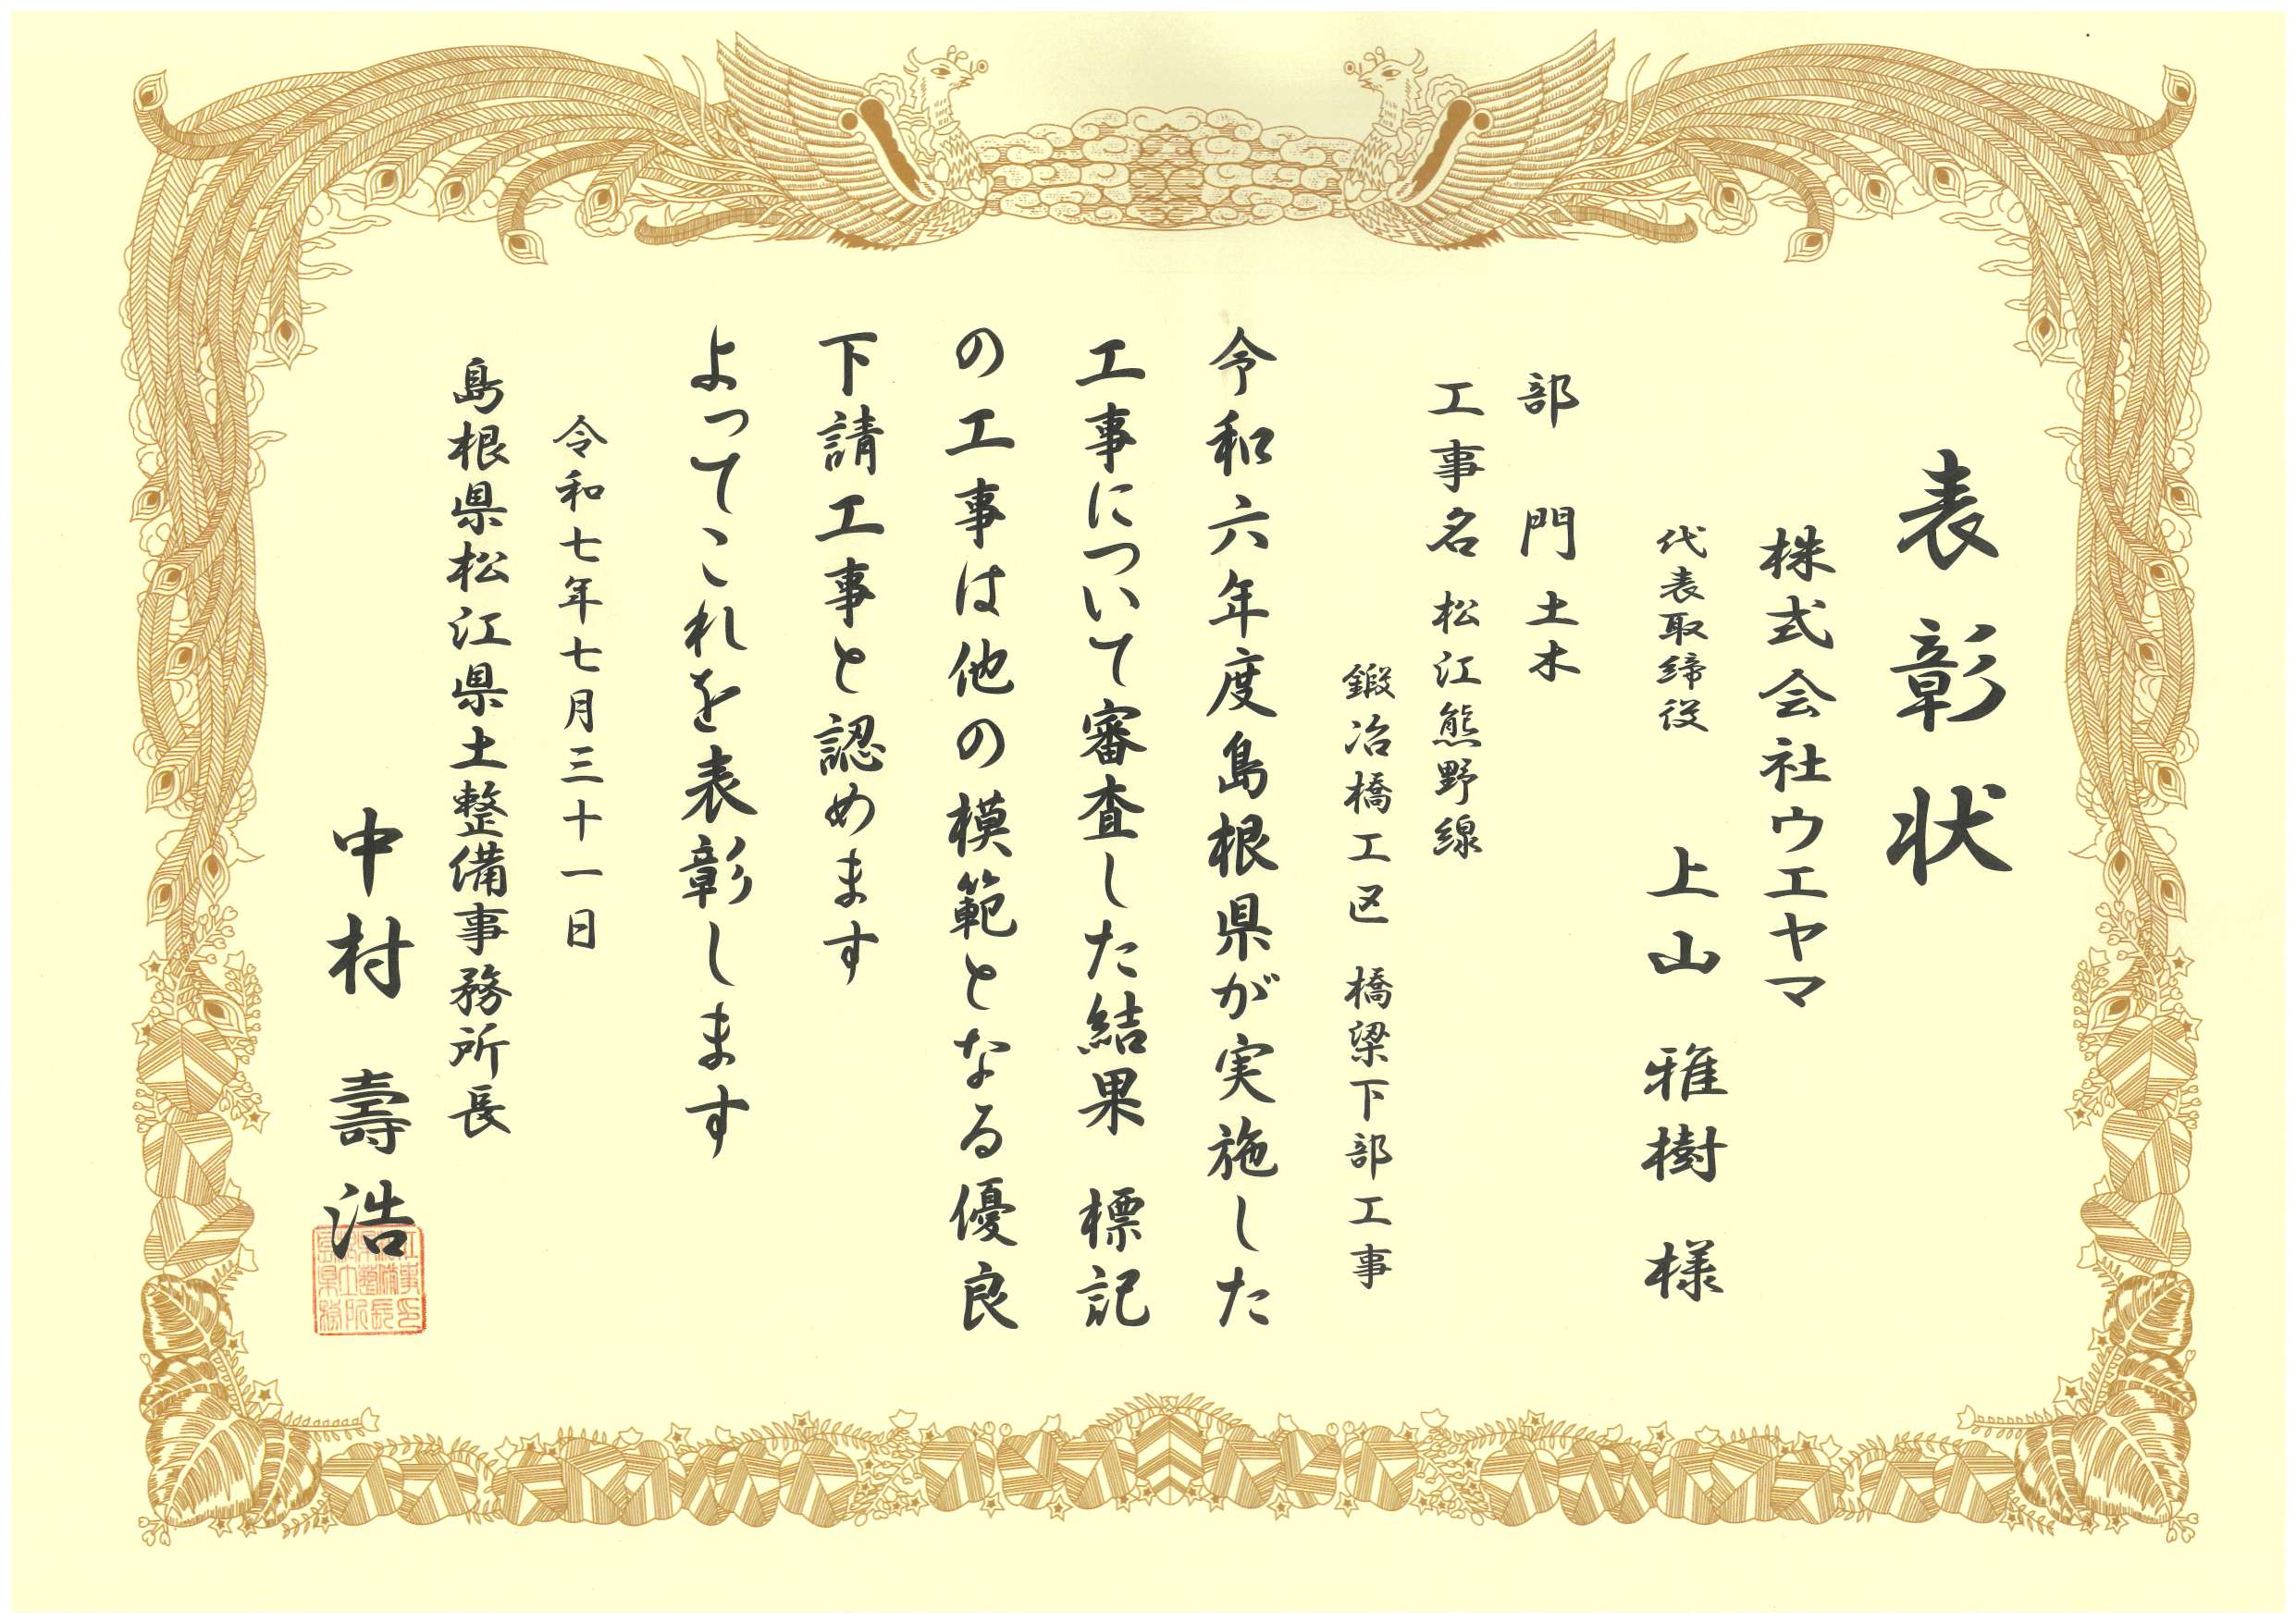 表彰状
株式会社ウエヤマ
代表取締役 上山 雅樹 様
部 門 土木
工事名 松江熊野線
鍛冶橋工区 橋梁下部工事
令和六年度島根県が実施した
工事について審査した結果 標記
の工事は他の模範となる優良
下請工事と認めます
よってこれを表彰します
令和七年七月三十一日
島根県松江県土整備事務所長
中村 壽浩